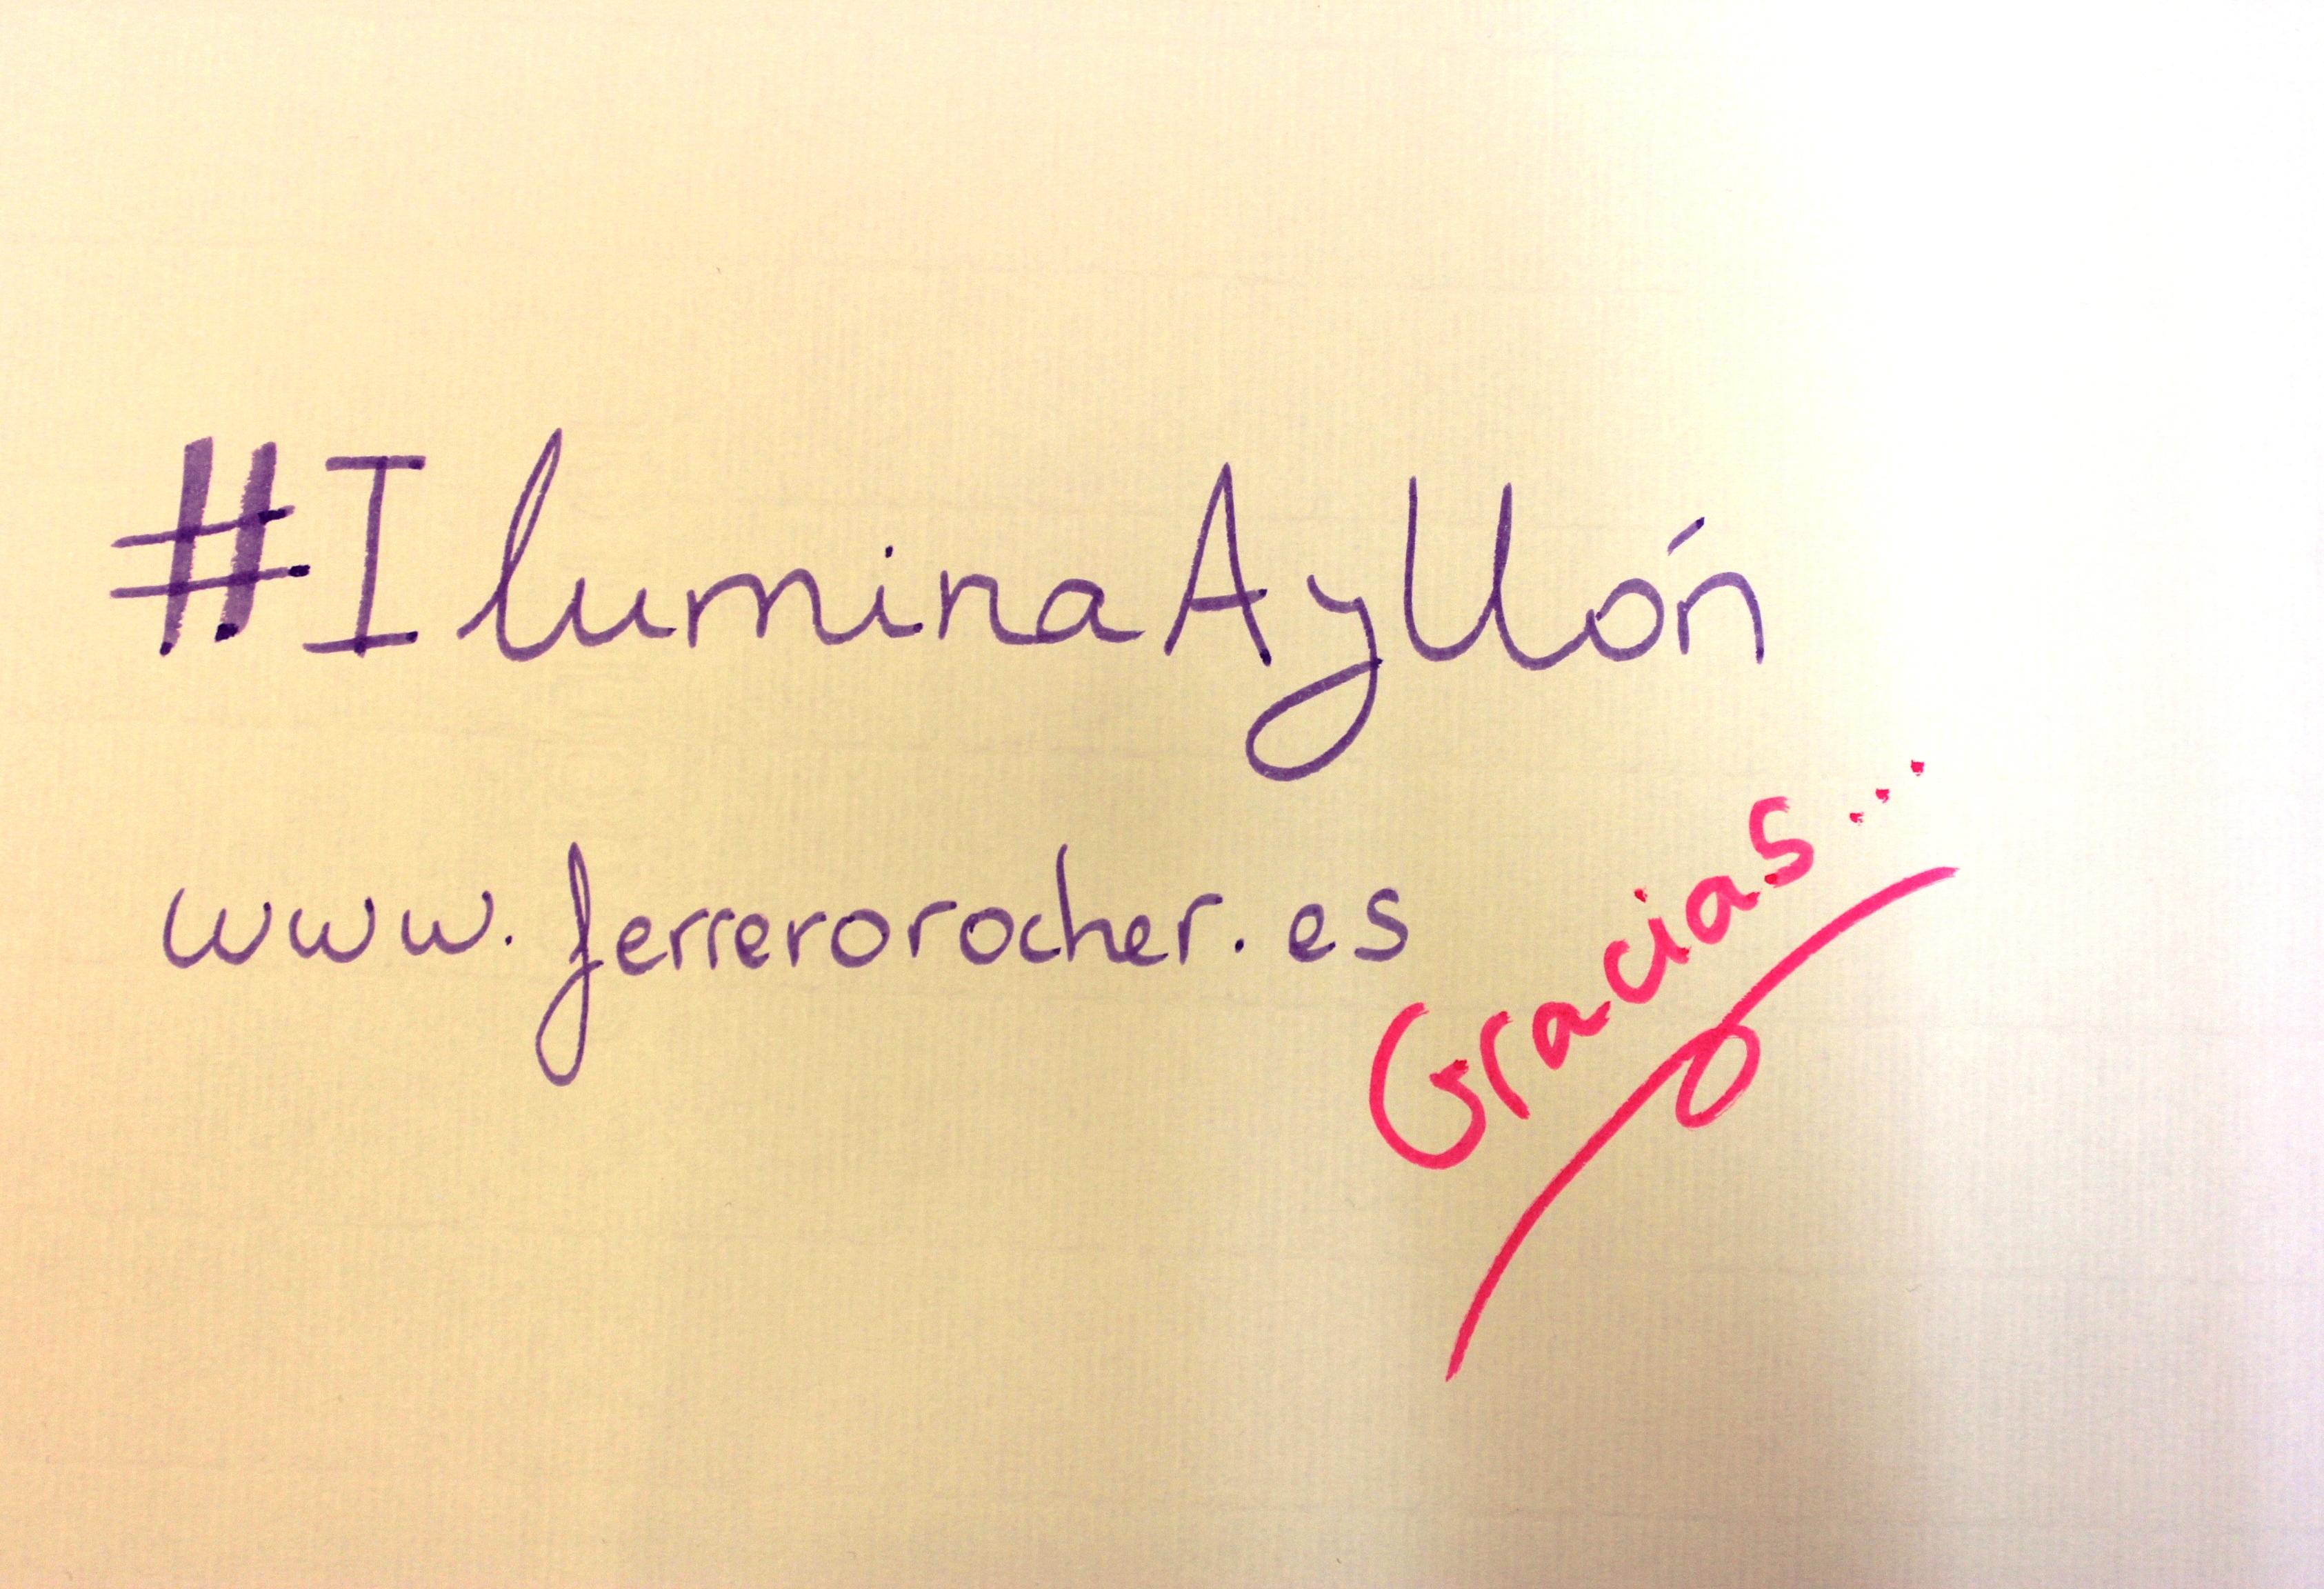 #IluminaAyllón
www.ferrerorocher.es
Gracias...